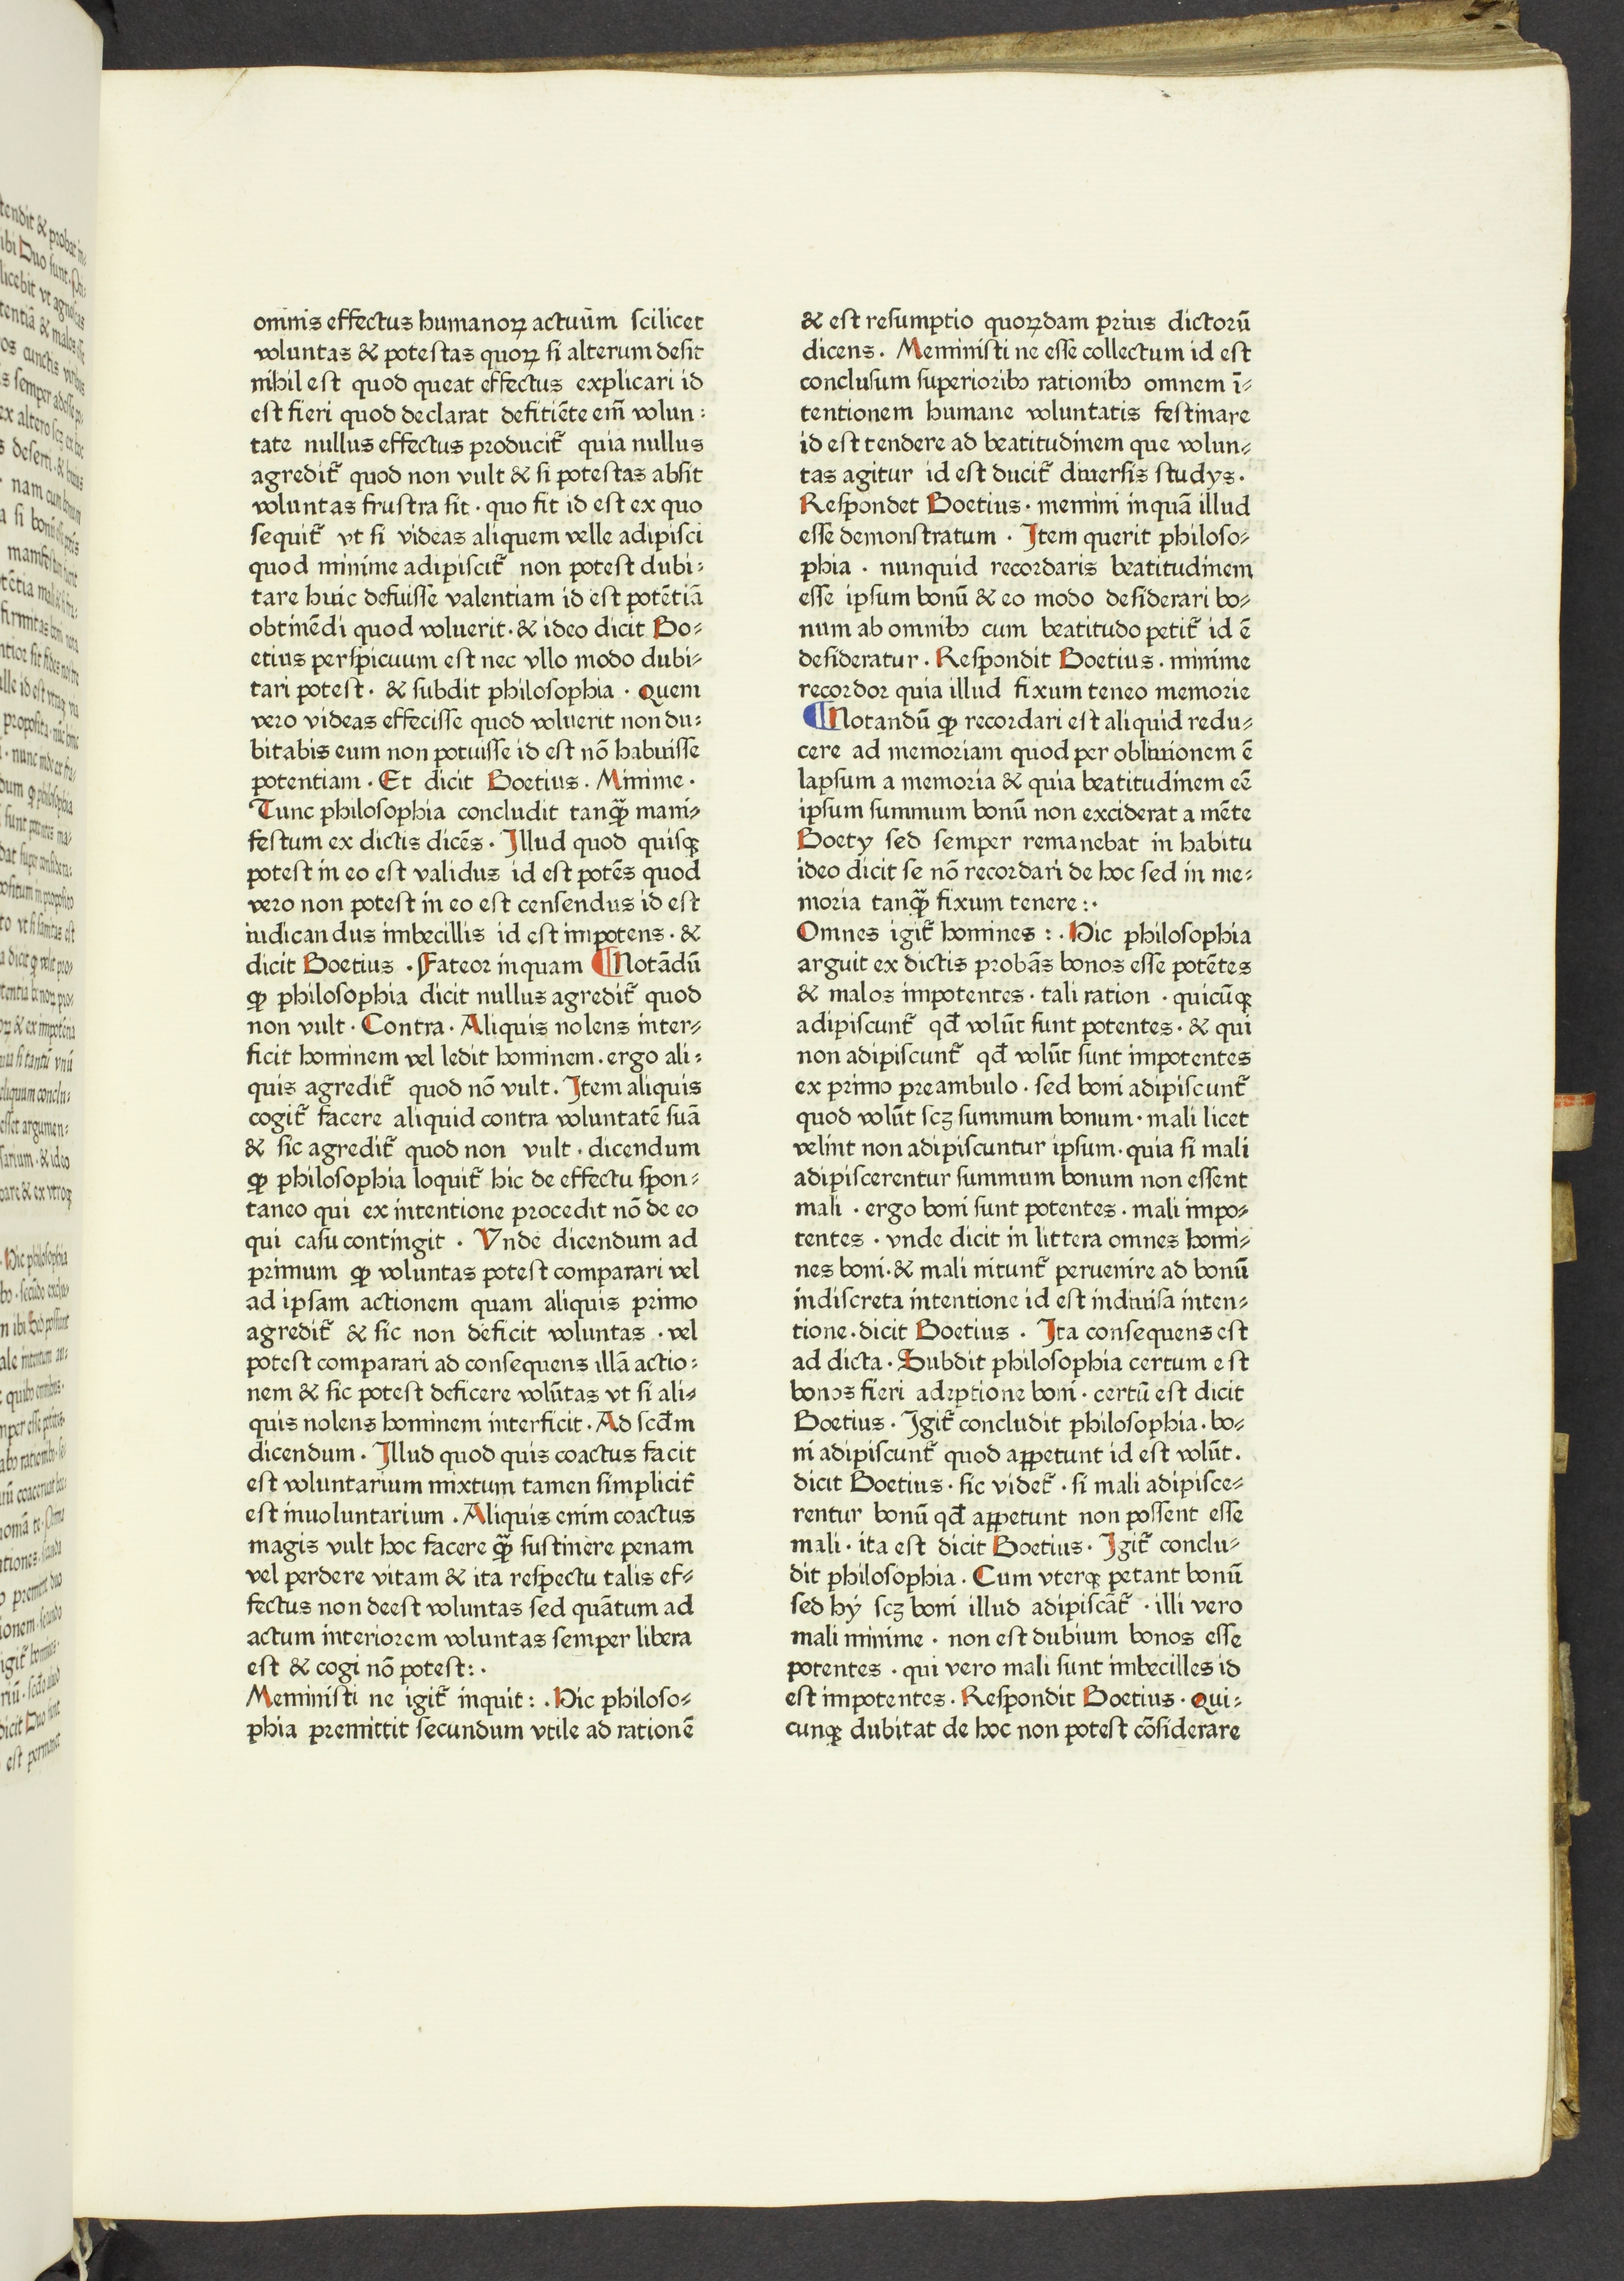 omnis effectus humanoꝝ actuū̄m scilicet
voluntas & potestas quoꝝ si alterum desit
nihil est quod queat effectus explicari id
est fieri quod declarat defitiēte em̄ volun:
tate nullus effectus producit᷑ quia nullus
agredit᷑ quod non vult & si potestas absit
voluntas frustra sit · quo fit id est ex quo
sequit᷑ vt si videas aliquem velle adipisci
quod minime adipiscit᷑ non potest dubi:
tare huic defuisse valentiam id est potētiā
obtinēdi quod voluerit · & ideo dicit Bo⸗
etius perspicuum est nec vllo modo dubi⸗
tari potest · & subdit philosophia · Quem
vero videas effecisse quod voluerit non du:
bitabis eum non potuisse id est nō habuisse
potentiam · Et dicit Boetius · Minime ·
Tunc philosophia concludit tanꝙ̄ mani⸗
festum ex dictis dicēs · Illud quod quisqꝫ
potest in eo est validus id est potēs quod
vero non potest in eo est censendus id est
iudicandus imbecillis id est impotens · &
dicit Boetius · Fateor inquam ¶Notādū
ꝙ philosophia dicit nullus agredit᷑ quod
non vult · Contra · Aliquis nolens inter⸗
ficit hominem vel ledit hominem · ergo ali:
quis agredit᷑ quod nō vult · Item aliquis
cogit᷑ facere aliquid contra voluntatē suā
& sic agredit᷑ quod non vult · dicendum
ꝙ philosophia loquit᷑ hic de effectu spon⸗
taneo qui ex intentione procedit nō de eo
qui casu contingit · Vnde dicendum ad
primum ꝙ voluntas potest comparari vel
ad ipsam actionem quam aliquis primo
agredit᷑ & sic non deficit voluntas · vel
potest comparari ad consequens illā actio:
nem & sic potest deficere volūtas vt si ali⸗
quis nolens hominem interficit · Ad scd̄m
dicendum · Illud quod quis coactus facit
est voluntarium mixtum tamen simplicit᷑
est inuoluntarium · Aliquis enim coactus
magis vult hoc facere ꝙ̄ sustinere penam
vel perdere vitam & ita respectu talis ef⸗
fectus non deest voluntas sed quātum ad
actum interiorem voluntas semper libera
est & cogi nō potest: ·
Meministi ne igit᷑ inquit: · Hic philoso⸗
phia premittit secundum vtile ad rationē
& est resumptio quoꝝdam prius dictorū
dicens · Meministi ne esse collectum id est
conclusum superioribꝰ rationibꝰ omnem ī⸗
tentionem humane voluntatis festinare
id est tendere ad beatitudinem que volun⸗
tas agitur id est ducit᷑ diuersis studys ·
Respondet Boetius · memini inquā illud
esse demonstratum · Item querit philoso⸗
phia · nunquid recordaris beatitudinem
esse ipsum bonū & eo modo desiderari bo⸗
num ab omnibꝰ cum beatitudo petit᷑ id ē
desideratur · Respondit Boetius · minime
recordor quia illud fixum teneo memorie
¶Notandū ꝙ recordari est aliquid redu⸗
cere ad memoriam quod per obliuionem ē
lapsum a memoria & quia beatitudinem eē
ipsum summum bonū non exciderat a mēte
Boety sed semper remanebat in habitu
ideo dicit se nō recordari de hoc sed in me⸗
moria tanꝙ̄ fixum tenere: ·
Omnes igit᷑ homines : · Hic philosophia
arguit ex dictis probās bonos esse potētes
& malos impotentes · tali ration · quicūqꝫ
adipiscunt᷑ qd̄ volūt sunt potentes · & qui
non adipiscunt᷑ qd̄ volūt sunt impotentes
ex primo preambulo · sed boni adipiscunt᷑
quod volūt scꝫ summum bonum · mali licet
velint non adipiscuntur ipsum · quia si mali
adipiscerentur summum bonum non essent
mali · ergo boni sunt potentes · mali impo⸗
tentes · vnde dicit in littera omnes homi⸗
nes boni · & mali nitunt᷑ peruenire ad bonū
indiscreta intentione id est indiuisa inten⸗
tione · dicit Boetius · Ita consequens est
ad dicta · Subdit philosophia certum est
bonos fieri adeptione boni · certū est dicit
Boetius · Igit᷑ concludit philosophia · bo⸗
ni adipiscunt᷑ quod appetunt id est volūt ·
dicit Boetius · sic videt᷑ · si mali adipisce⸗
rentur bonū qd̄ appetunt non possent esse
mali · ita est dicit Boetius · Igit᷑ conclu⸗
dit philosophia · Cum vterqꝫ petant bonū
sed hy scꝫ boni illud adipiscāt᷑ · illi vero
mali minime · non est dubium bonos esse
potentes · qui vero mali sunt imbecilles id
est impotentes · Respondit Boetius · Qui⸗
cunqꝫ dubitat de hoc non potest cōsiderare